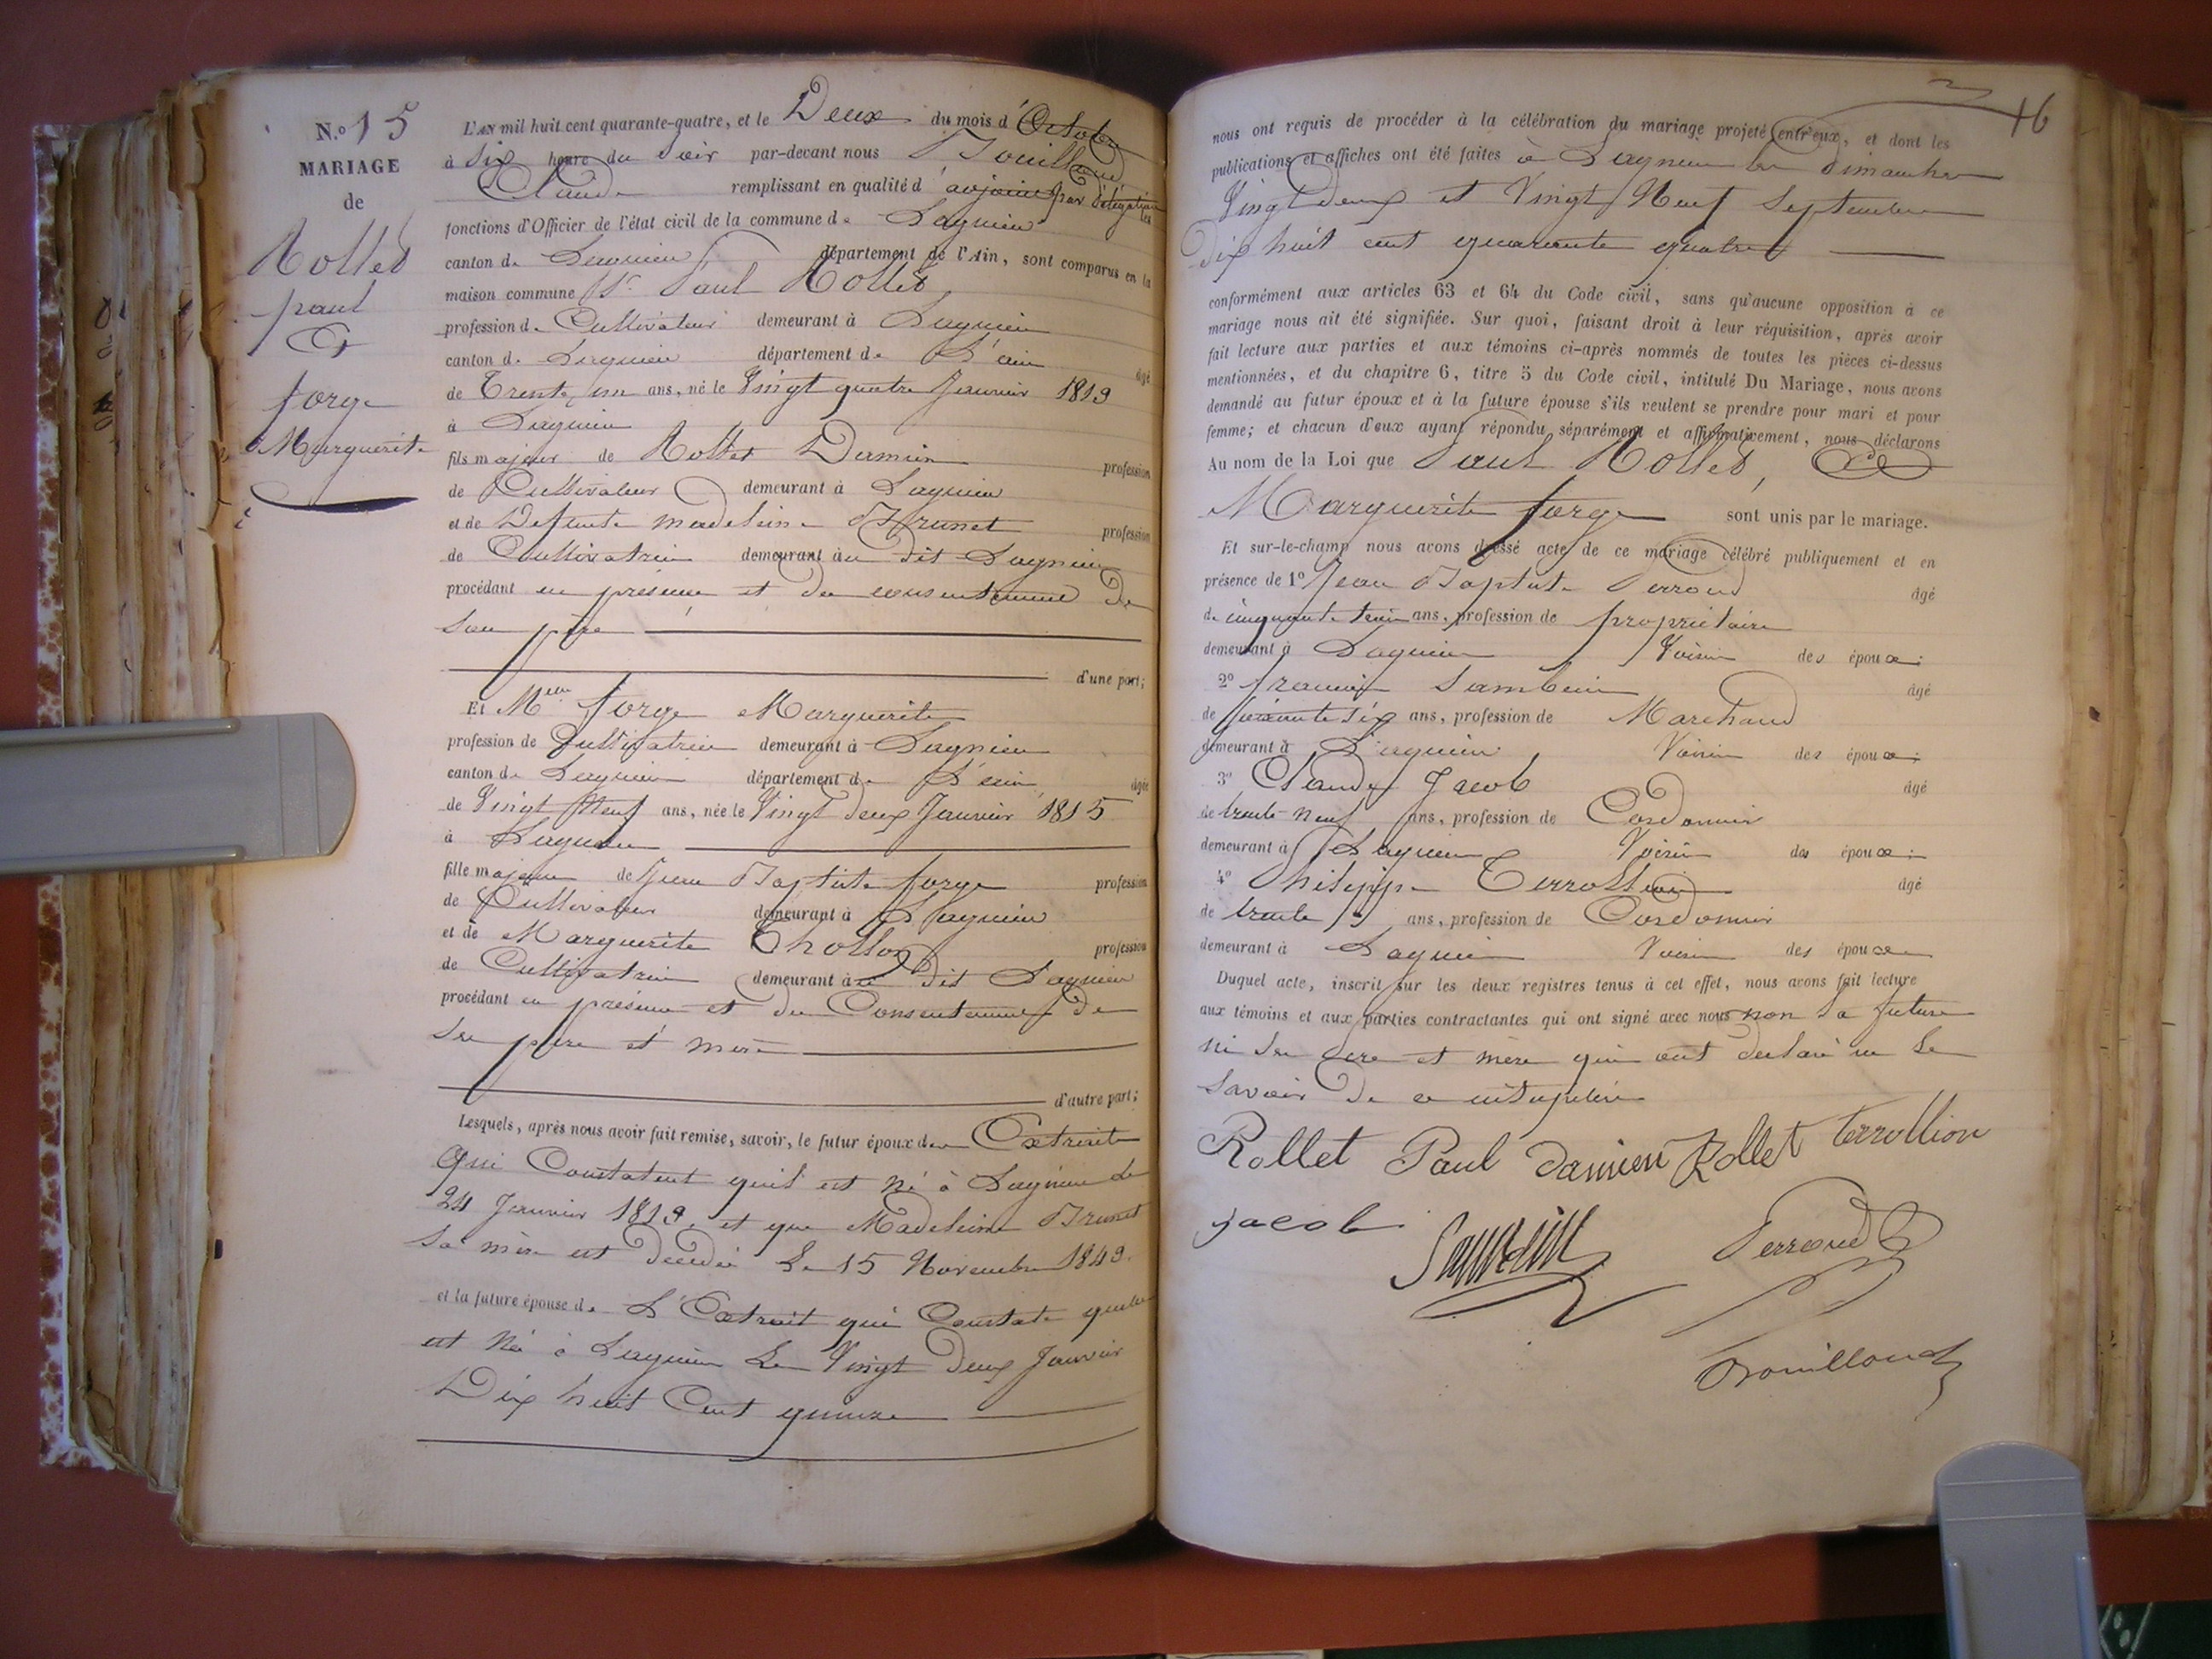 N.º 15
MARIAGE
de
Rollet
paul
&
forge
Marguerite
L'AN mil huit cent quarante-quatre, et le Deux du mois d'Octobre
à Six heure du Soir par-devant nous Bouilloud
Claude remplissant en qualité d'adjoint par délégation les
fonctions d'Officier de l'état civil de la commune de Lagnieu
canton de Lagnieu département de l'Ain, sont comparus en la
maison commune Sr. Paul Rollet
profession de Cultivateur demeurant à Lagnieu
canton de Lagnieu département de L'ain âgé
de Trente un ans, né le Vingt quatre Janvier 1813
à Lagnieu
fils majeur de Rollet Damien profession
de Cultivateur demeurant à Lagnieu
et de Defunte madeleine Brunet profession
de Cultivatrice demeurant au dit Lagnieu
procédant en présence et du consentement de
Son père
d'une part;
Et Melle forge Marguerite
profession de Cultivatrice demeurant à Lagnieu
canton de Lagnieu département de L'ain âgée
de Vingt Neuf ans, née le Vingt deux Janvier 1815
à Lagnieu
fille majeure de Jean Baptiste forge profession
de Cultivateur demeurant à Lagnieu
et de Marguerite Chollon profession
de Cultivatrice demeurant au dit Lagnieu
procédant en présence et du Consentement de
Ses père et mère
d'autre part;
Lesquels, après nous avoir fait remise, savoir, le futur époux des Extraits
Qui Constatent quil est Né à Lagnieu le
24 Janvier 1813, et que Madeleine Brunet
Sa mère est décédée Le 15 Novembre 1843.
et la future épouse de L'Extrait qui Constate quelle
est Née à Lagnieu Le Vingt deux Janvier
Dix huit Cent quinze
16
nous ont requis de procéder à la célébration du mariage projeté entr'eux, et dont les
publications et affiches ont été faites à Lagnieu les dimanches
Vingt deux et Vingt Neuf Septembre
dix huit cent quarante quatre
conformément aux articles 63 et 64 du Code civil, sans qu'aucune opposition à ce
mariage nous ait été signifiée. Sur quoi, faisant droit à leur réquisition, après avoir
fait lecture aux parties et aux témoins ci-après nommés de toutes les pièces ci-dessus
mentionnées, et du chapitre 6, titre 5 du Code civil, intitulé Du Mariage, nous avons
demandé au futur époux et à la future épouse s'ils veulent se prendre pour mari et pour
femme; et chacun d'eux ayant répondu séparément et affirmativement, nous déclarons
Au nom de la Loi que Paul Rollet, &
Marguerite forge sont unis par le mariage.
Et sur-le-champ nous avons dressé acte de ce mariage célébré publiquement et en
présence de 1º Jean Baptiste Perroud âgé
de cinquante trois ans, profession de propriétaire
demeurant à Lagnieu Voisin des époux;
2º françois Sambein âgé
de soixante Six ans, profession de Marchand
demeurant à Lagnieu Voisin des époux;
3º Claude Jacob âgé
de trente neuf ans, profession de Cordonnier
demeurant à Lagnieu Voisin des époux;
4º Philippe Terrollion âgé
de trente ans, profession de Cordonnier
demeurant à Lagnieu Voisin des époux
Duquel acte, inscrit sur les deux registres tenus à cet effet, nous avons fait lecture
aux témoins et aux parties contractantes qui ont signé avec nous non La future
ni Ses père et mère qui ont declaré ne Le
Savoir de ce
Rollet Paul Damien Rollet terrollion
jacob Perroud
Bouilloud